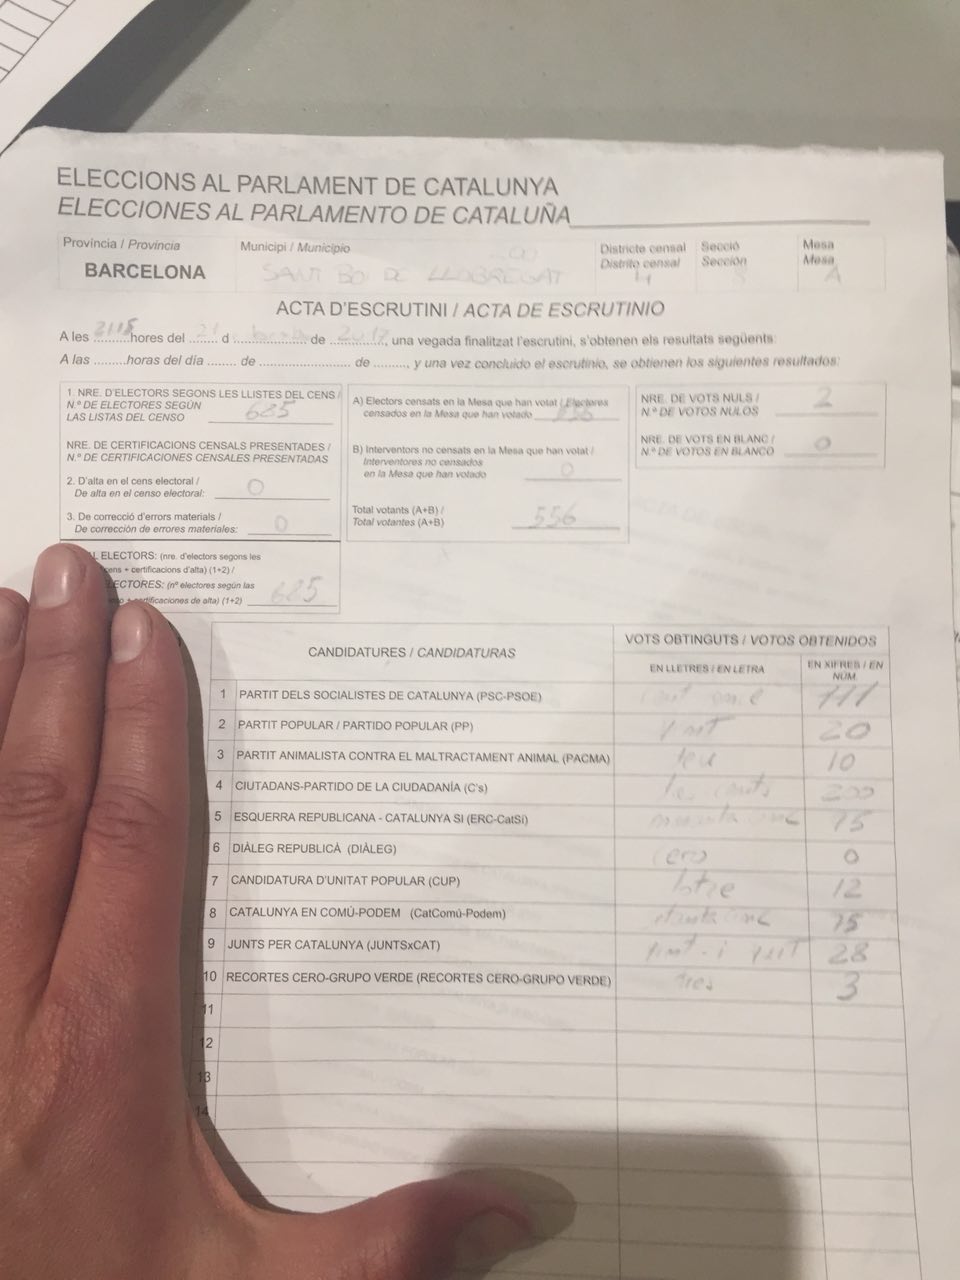 ELECCIONS AL PARLAMENT DE CATALUNYA
ELECCIONES AL PARLAMENTO DE CATALUÑA
Província / Provincia
Municipi / Municipio
Districte censal
Distrito censal
Secció
Sección
Mesa
Mesa
BARCELONA
SANT BOI DE LLOBREGAT
4
8
A
ACTA D'ESCRUTINI / ACTA DE ESCRUTINIO
A les 2115 hores del 21 d de 2017, una vegada finalitzat l'escrutini, s'obtenen els resultats següents:
A las ........horas del día ..... de ...................... de ........, y una vez concluido el escrutinio, se obtienen los siguientes resultados:
1. NRE. D'ELECTORS SEGONS LES LLISTES DEL CENS /
N.º DE ELECTORES SEGÚN
LAS LISTAS DEL CENSO 685
NRE. DE CERTIFICACIONS CENSALS PRESENTADES /
N.º DE CERTIFICACIONES CENSALES PRESENTADAS
2. D'alta en el cens electoral /
De alta en el censo electoral: 0
3. De correcció d'errors materials /
De corrección de errores materiales: 0
L ELECTORS: (nre. d'electors segons les
cens + certificacions d'alta) (1+2) /
ECTORES: (nº electores según las
+ certificaciones de alta) (1+2) 685
A) Electors censats en la Mesa que han votat / Electores
censados en la Mesa que han votado 556
B) Interventors no censats en la Mesa que han votat /
Interventores no censados
en la Mesa que han votado 0
Total votants (A+B) /
Total votantes (A+B) 556
NRE. DE VOTS NULS /
N.º DE VOTOS NULOS 2
NRE. DE VOTS EN BLANC /
N.º DE VOTOS EN BLANCO 0
CANDIDATURES / CANDIDATURAS
VOTS OBTINGUTS / VOTOS OBTENIDOS
EN LLETRES / EN LETRA
EN XIFRES / EN
NÚM.
1 PARTIT DELS SOCIALISTES DE CATALUNYA (PSC-PSOE) cent onze 111
2 PARTIT POPULAR / PARTIDO POPULAR (PP) vint 20
3 PARTIT ANIMALISTA CONTRA EL MALTRACTAMENT ANIMAL (PACMA) deu 10
4 CIUTADANS-PARTIDO DE LA CIUDADANÍA (C's) 200
5 ESQUERRA REPUBLICANA - CATALUNYA SÍ (ERC-CatSí)
6 DIÀLEG REPUBLICÀ (DIÀLEG) cero 0
7 CANDIDATURA D'UNITAT POPULAR (CUP) 12
8 CATALUNYA EN COMÚ-PODEM (CatComú-Podem)
9 JUNTS PER CATALUNYA (JUNTSxCAT) vint-i vuit 28
10 RECORTES CERO-GRUPO VERDE (RECORTES CERO-GRUPO VERDE) tres 3
11
12
13
14